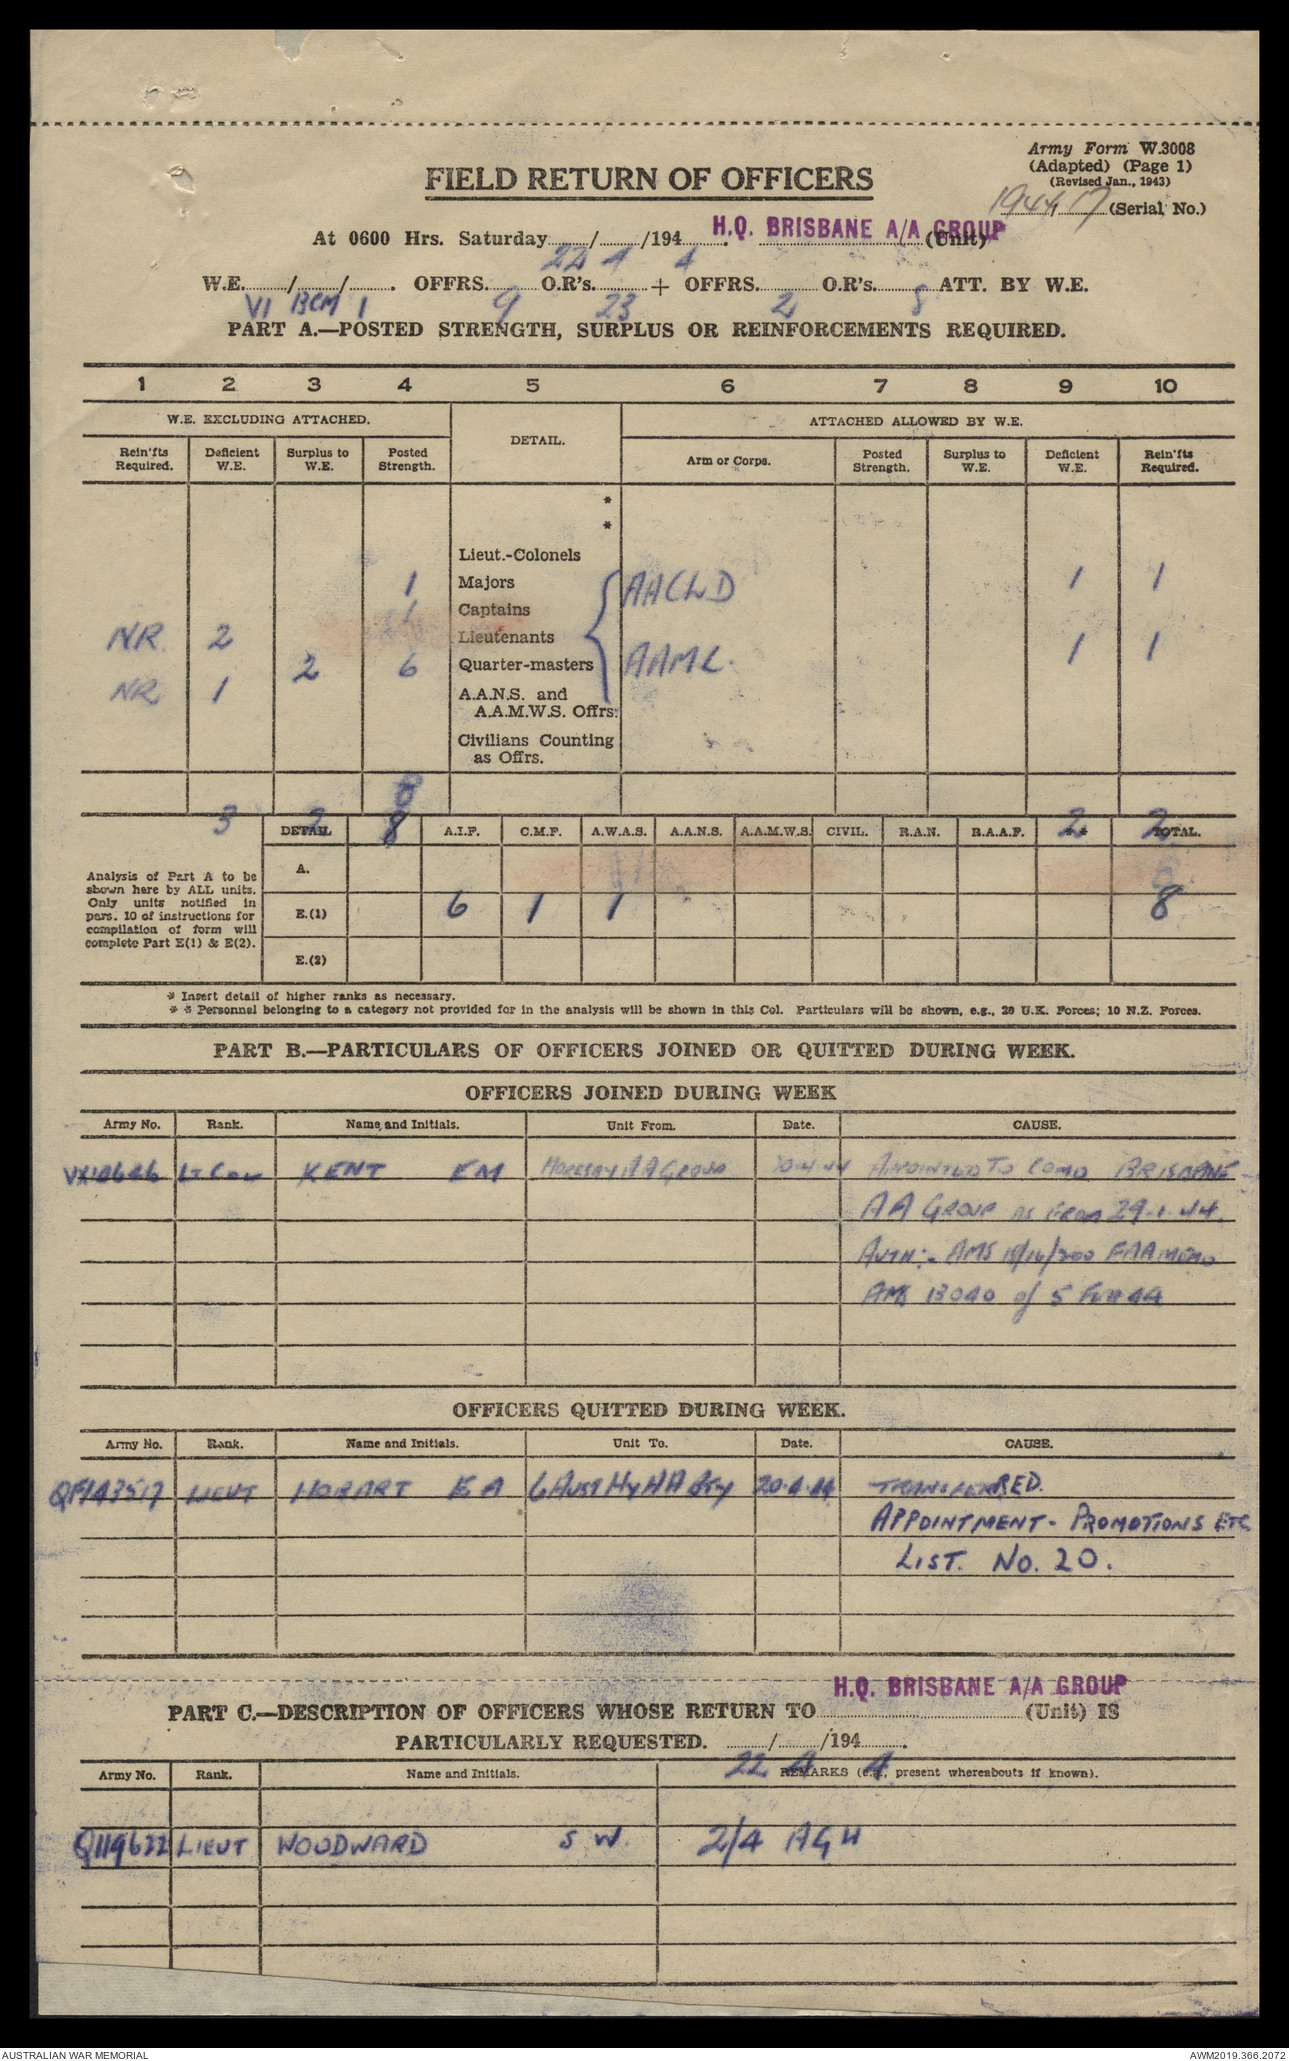 Army Form W.3008
(Adapted) (Page 1)
(Revised Jan., 1943)
FIELD RETURN OF OFFICERS
1944/17 (Serial No.)
At 0600 Hrs. Saturday 22/4/194 4. H.Q. BRISBANE A/A GROUP (Unit)
W.E. VI/BCM/1. OFFRS. 9 O.R's. 23 + OFFRS. 2 O.R's. 8 ATT. BY W.E.
PART A.—POSTED STRENGTH, SURPLUS OR REINFORCEMENTS REQUIRED.
1 2 3 4 5 6 7 8 9 10
W.E. EXCLUDING ATTACHED. DETAIL. ATTACHED ALLOWED BY W.E.
Rein'fts Required. Deficient W.E. Surplus to W.E. Posted Strength. Arm or Corps. Posted Strength. Surplus to W.E. Deficient W.E. Rein'fts Required.
*
*
Lieut.-Colonels
1 Majors AACLD 1 1
1 Captains
NR. 2 Lieutenants 1 1
2 6 Quarter-masters AAMC.
NR 1 A.A.N.S. and
A.A.M.W.S. Offrs.
Civilians Counting
as Offrs.
8
3 2 8 2 2
DETAIL A.I.F. C.M.F. A.W.A.S. A.A.N.S. A.A.M.W.S. CIVIL. R.A.N. R.A.A.F. ** TOTAL.
Analysis of Part A to be
shown here by ALL units.
Only units notified in
pars. 10 of instructions for
compilation of form will
complete Part E(1) & E(2).
A.
E.(1) 6 1 1 8
E.(2)
* Insert detail of higher ranks as necessary.
* * Personnel belonging to a category not provided for in the analysis will be shown in this Col. Particulars will be shown, e.g., 20 U.K. Forces; 10 N.Z. Forces.
PART B.—PARTICULARS OF OFFICERS JOINED OR QUITTED DURING WEEK.
OFFICERS JOINED DURING WEEK
Army No. Rank. Name and Initials. Unit From. Date. CAUSE.
LT COL KENT EM MORESBY AA GROUP 20-4-44 APPOINTED TO COMD BRISBANE
AA GROUP AS FROM 29-1-44.
AUTH:- AMS
AMS 13040 of 5 FEB 44
OFFICERS QUITTED DURING WEEK.
Army No. Rank. Name and Initials. Unit To. Date. CAUSE.
QF143517 LIEUT HOBART E A 6 AUST HY AA BTY 20-4-44 TRANSFERRED.
APPOINTMENT- PROMOTIONS ETC
LIST. NO. 20.
H.Q. BRISBANE A/A GROUP
PART C.—DESCRIPTION OF OFFICERS WHOSE RETURN TO (Unit) IS
PARTICULARLY REQUESTED. 22/4/194 4.
Army No. Rank. Name and Initials. REMARKS (e.g., present whereabouts if known).
Q119622 LIEUT WOODWARD S W. 2/4 AGH
AUSTRALIAN WAR MEMORIAL AWM2019.366.2072